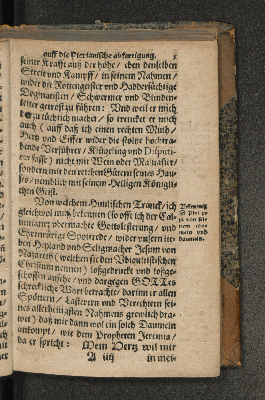 auff die Pierianische abfertigung. 5
seiner Krafft auß der höhe / eben denselben
Streit und Kampff / in seinem Nahmen /
wider die Rottengeister und Haddersüchtige
Dogmatisten / Schwermer und Blinden-
leiter getrost zu führen: Und weil er mich
zu tüchtich macht / so trencket er mich
auch ( auff daß ich einen rechten Muth /
Hertz und Eiffer wider die stoltze
bende Verführer / Klügeling und Disputi-
rer fasse ) nicht mit Wein oder Malvasier /
sondern mit den reichen Gütern seines Hau-
ses / nemblich mit seinem Heiligen Königli-
chen Geist.
Von welchem Himlischen Tranck / ich
gleichwol muß bekennen ( so offt ich der Cal-
vinianer übermachte Gotteslesterung / und
Speywörge Spottrede / wider unsern lie-
ben Heyland und Seligmacher Jesum von
Nazareth ( welchen sie den Ubiquitistischen
Christum nennen ) loßgedruckt und loßge-
schossen ansehe / und dargegen GOTTes
schreckliche Wort betrachte / darinn er allen
Spöttern / Lästerern und Verechtern sei-
nes allerheiligsten Nahmens grewlich dra-
wet ) daß mir dann wol ein solch Daumeln
ankompt / wie dem Propheten Jeremia /
da er spricht: Mein Hertz wil mir
A iiij in mei-